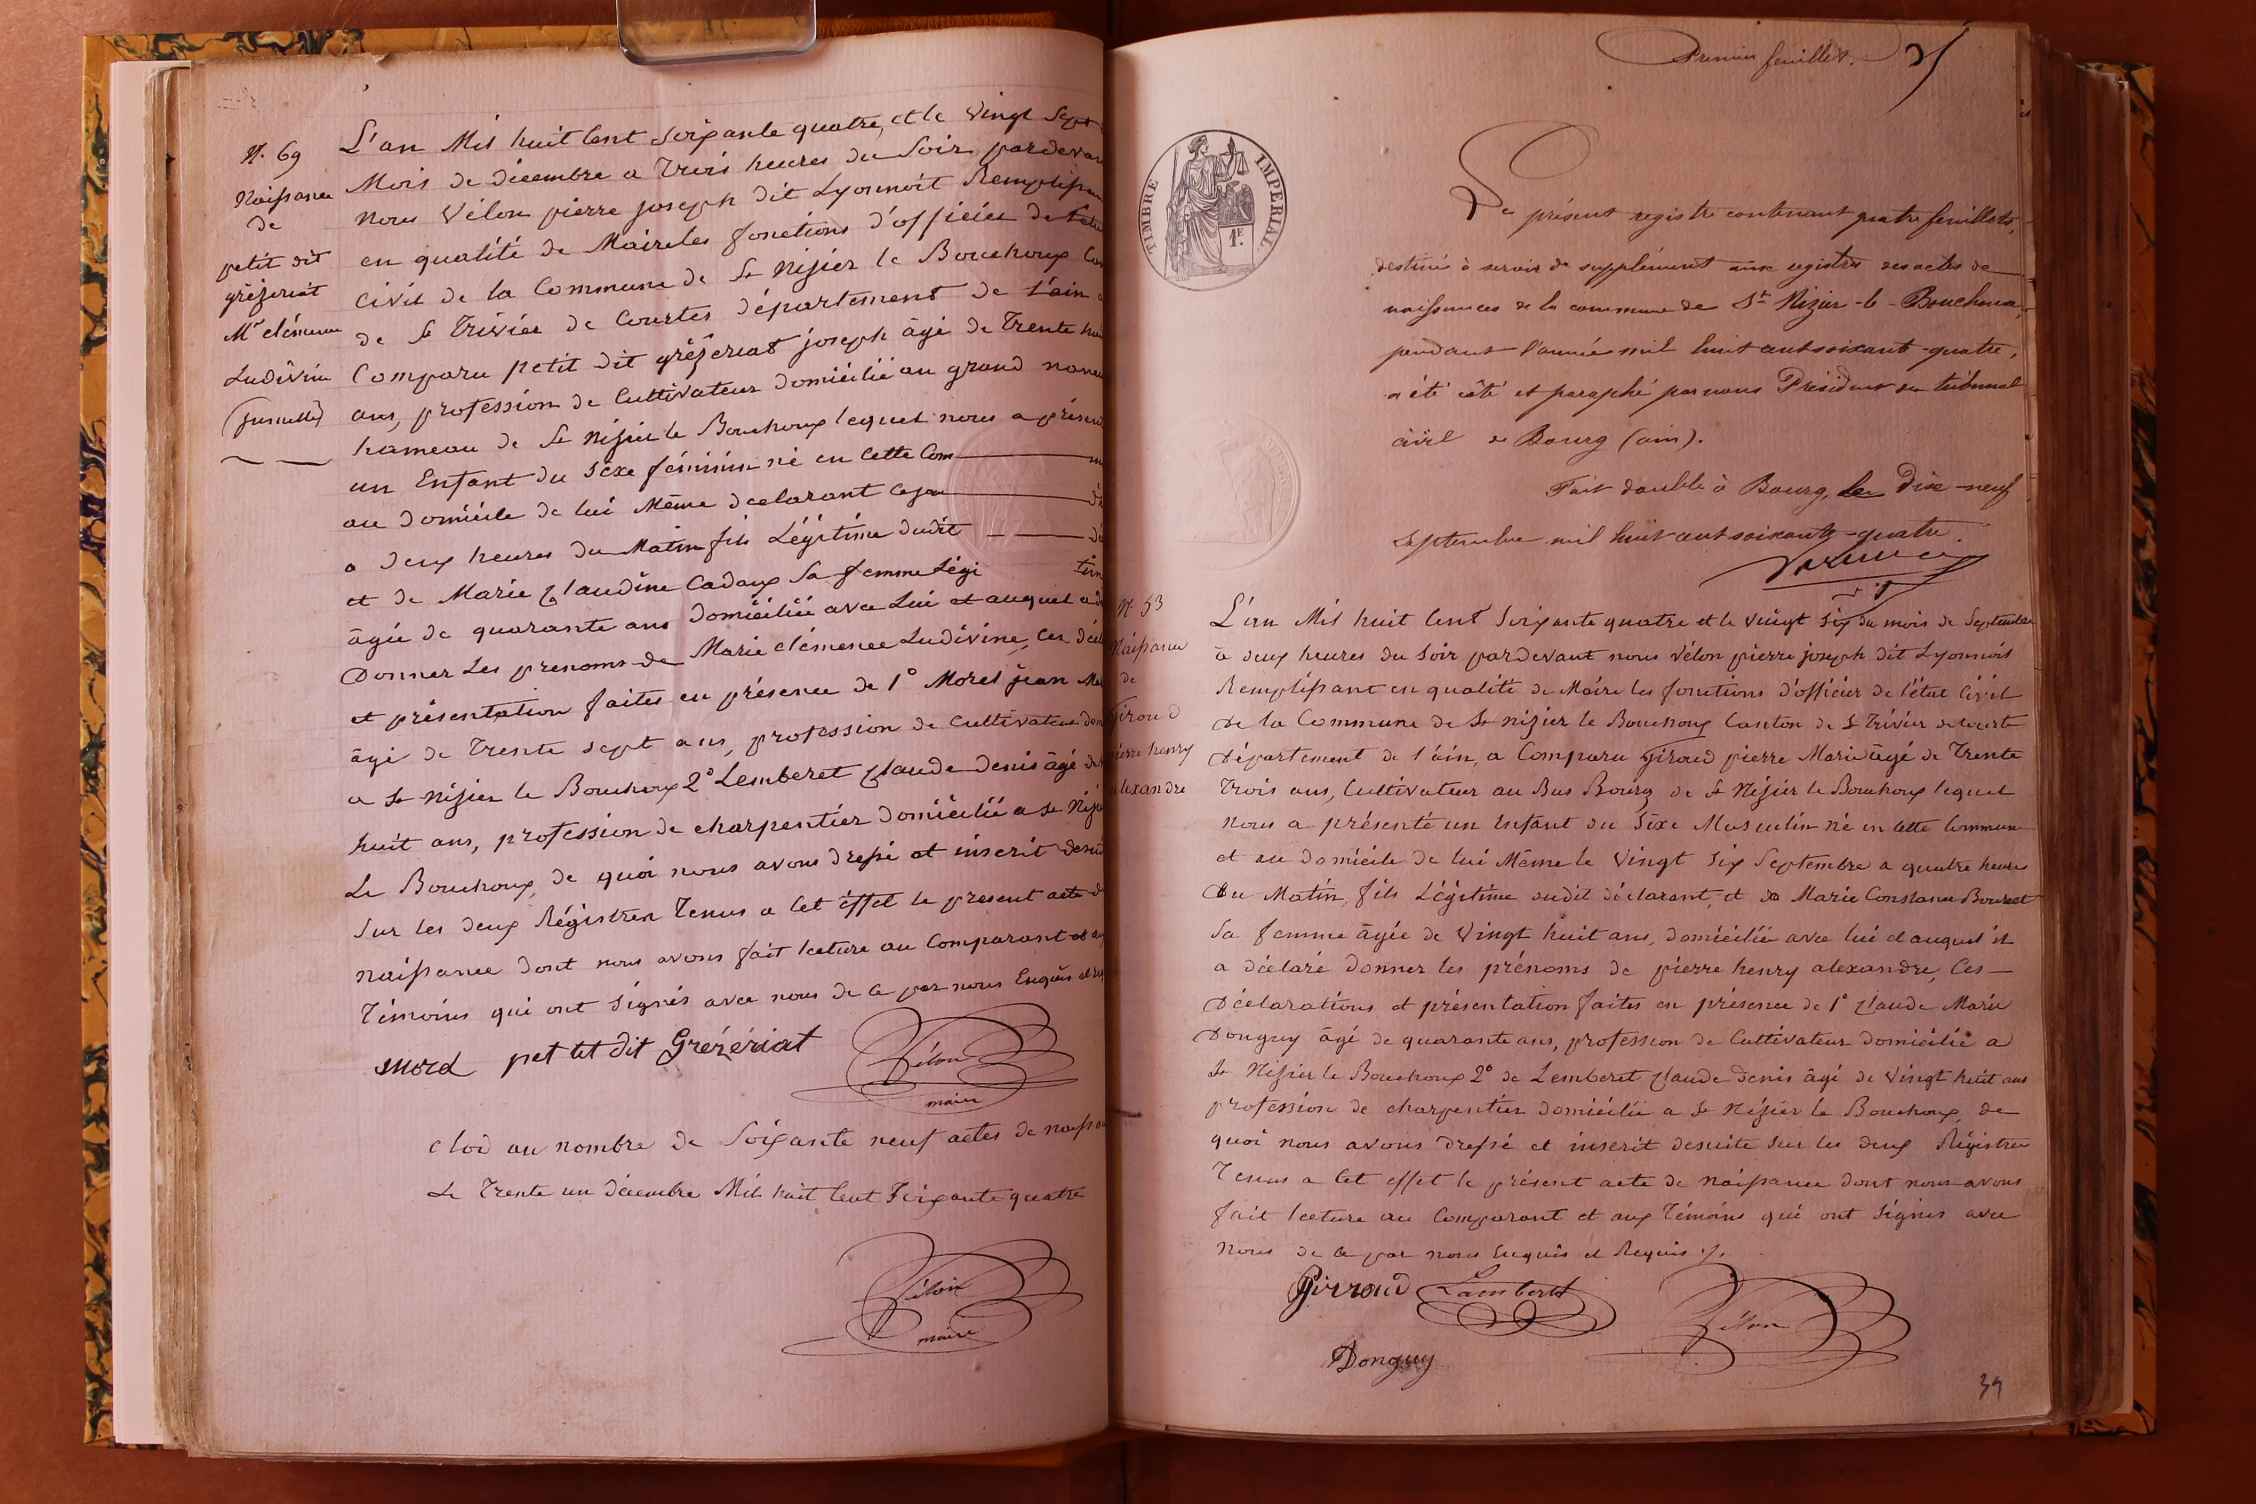 N. 69
Naissance
de
petit dit
grézeriat
Mie clémence
Ludivine
(jumelle)
L'an Mil huit Cent soixante quatre, et le vingt sept
Mois de décembre a trois heures du Soir pardevan
nous Vélon pierre joseph dit Lyonnoit Remplissan
en qualité de Maire les fonctions d'officier de l'état
Civil de la Commune de St Nisier le Bouchoux Can
de St Trivier de Courtes département de l'ain a
Comparu petit dit grézeriat joseph âgé de Trente hui
ans, profession de Cultivateur domicilié au grand
hameau de St Nisier le Bouchoux lequel nous a présen
un Enfant du sexe féminin né en Cette Com
au domicile de lui Même déclarant
a deux heures du Matin fils Légitime dudit
et de Marie Claudine Cadoux Sa femme Légi tim
âgée de quarante ans domiciliée avec Lui et auquel a
Donner Les prenoms de Marie clémence Ludivine, Ces décl
et présentation faites en présence de 1° Morel jean Ma
âgé de Trente sept ans, profession de Cultivateur dom
a St Nisier le Bouchoux 2° Lemberet Claude denis âgé de
huit ans, profession de charpentier domicilié a St Nisi
Le Bouchoux, de quoi nous avons dressé et inscrit desui
Sur les deux Régistres Tenus a Cet éffet le présent acte d
naissance dont nous avons fait lecture au Comparant et au
Témoins qui ont signés avec nous de ce par nous Enquis et
morel petit dit Grézériat Vélon
maire
Clos au nombre de Soixante neuf actes de naissan
Le Trente un décembre Mil huit Cent Soixante quatre
Vélon
maire
Premier feuillet.
TIMBRE IMPERIAL
1F.
Le présent registre contenant quatre feuillets,
destiné à servir de supplément aux registres des actes de
naissances de la commune de St Nizier-le-Bouchoux,
pendant l'année mil huit cent soixante-quatre,
a été coté et paraphé par nous Président du tribunal
civil de Bourg (ain).
Fait double à Bourg, le Dix-neuf
Septembre mil huit cent soixante-quatre.
N. 53
Naissance
de
Giroud
pierre henry
alexandre
L'an Mil huit Cent Soixante quatre et le vingt six du mois de Septembre
à deux heures du Soir pardevant nous Vélon pierre joseph dit Lyonnois
Remplissant en qualité de Maire les fonctions d'officier de l'état Civil
De la Commune de St nisier le Bouchoux Canton de St Trivier de Courte
Département de l'ain, a Comparu Giroud pierre Marie âgé de Trente
Trois ans, Cultivateur au Bas Bourg de St Nisier le Bouchoux lequel
nous a présenté un Enfant du Sexe Masculin né en Cette Commune
et au domicile de lui Même le Vingt Six Septembre a quatre heures
Du Matin, fils Légitime dudit déclarant, et de Marie Constance
Sa femme âgée de Vingt huit ans, domiciliée avec lui et auquel il
a déclaré donner les prénoms de pierre henry alexandre, Ces
Déclarations et présentation faites en présence de 1° Claude Marie
Donguy âgé de quarante ans, profession de Cultivateur domicilié a
St Nisier le Bouchoux 2° de Lemberet Claude denis âgé de Vingt huit ans
profession de charpentier domicilié a St Nisier le Bouchoux, de
quoi nous avons dressé et inscrit desuite sur les deux Régistres
Tenus a Cet effet le présent acte de naissance dont nous avons
fait lecture au Comparant et aux Témoins qui ont signés avec
nous de ce par nous Enquis et Requis ./.
Girroud Lamberet Vélon
Donguy
39